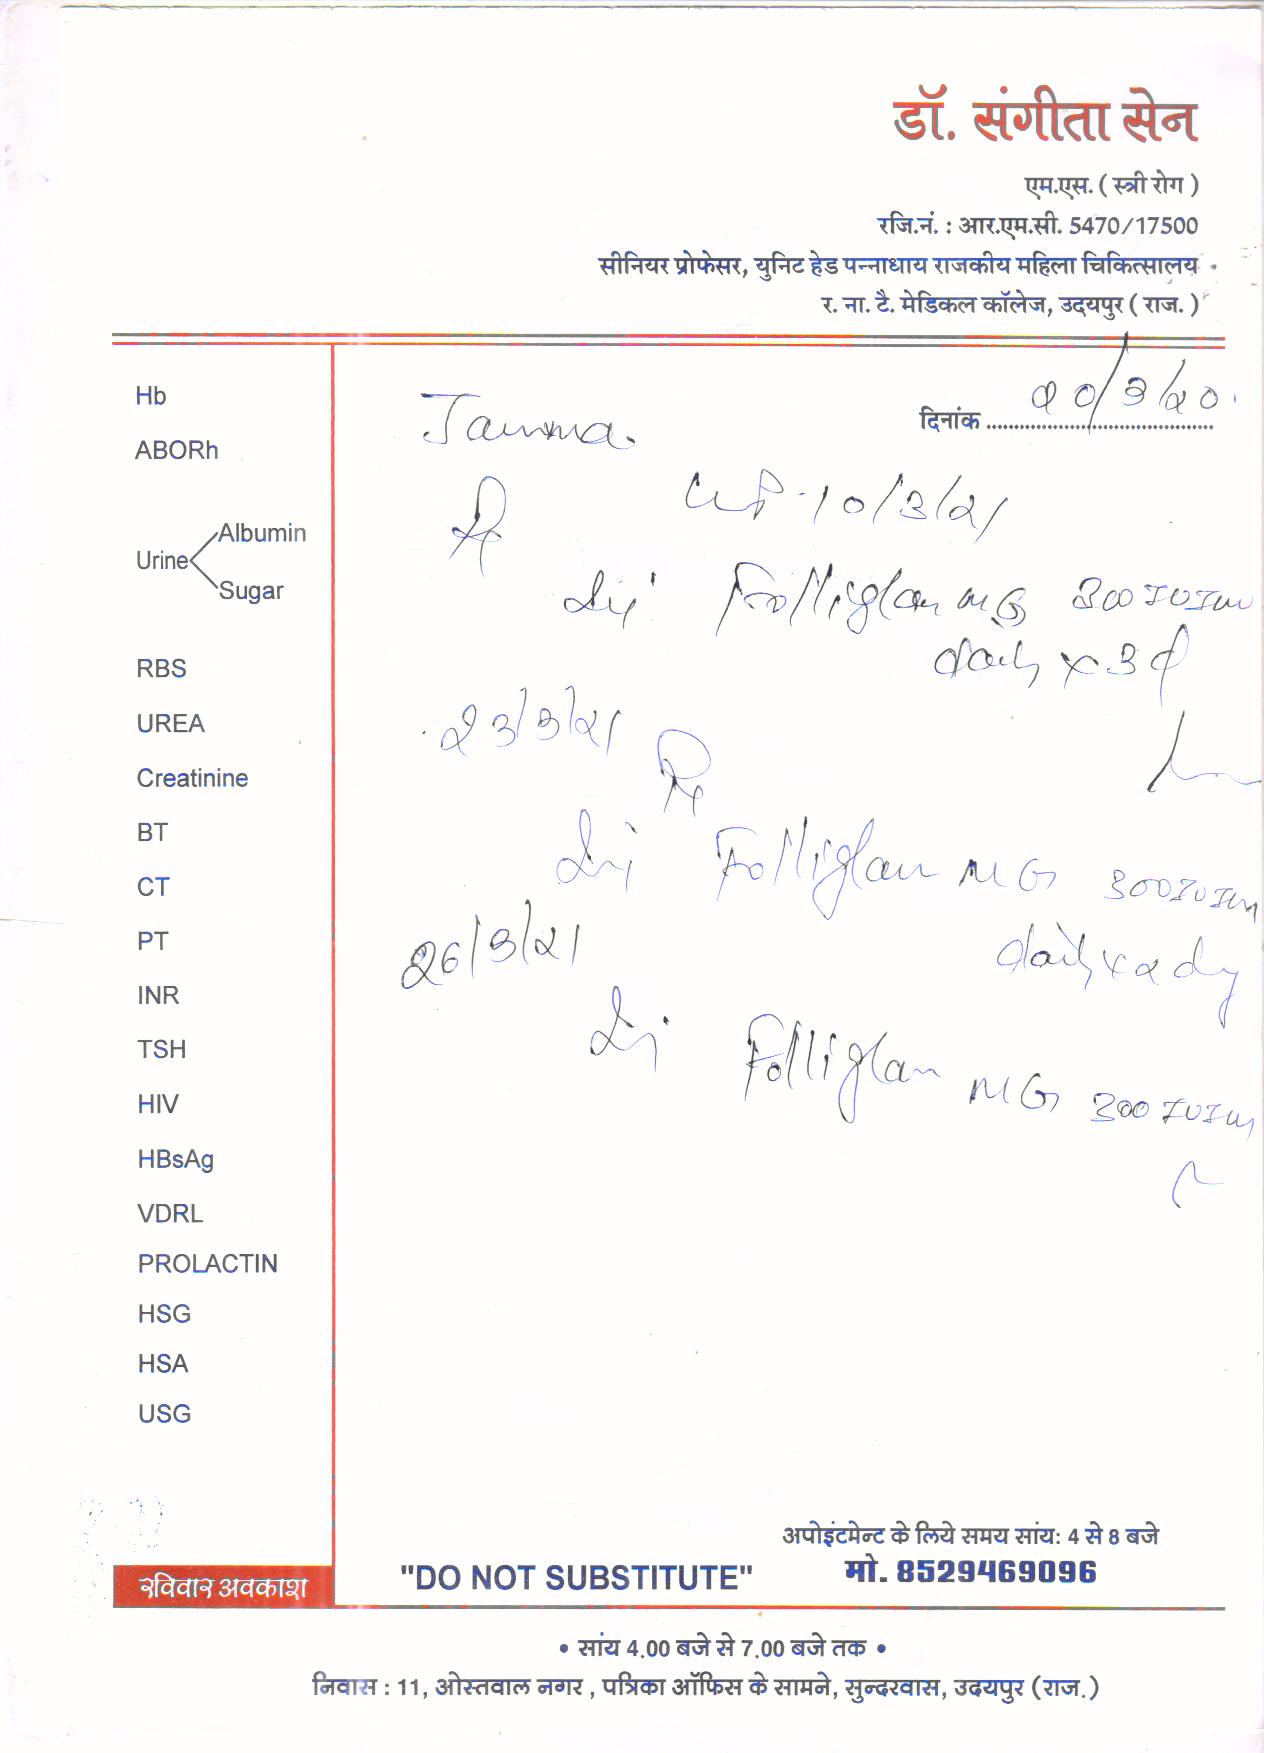 डॉ. संगीता सेन
एम.एस. ( स्त्री रोग )
रजि.नं. : आर.एम.सी. 5470/17500
सीनियर प्रोफेसर, युनिट हेड पन्नाधाय राजकीय महिला चिकित्सालय
र. ना. टै. मेडिकल कॉलेज, उदयपुर ( राज. )
दिनांक 20/3/20
Hb
ABORh
Urine
Albumin
Sugar
RBS
UREA
Creatinine
BT
CT
PT
INR
TSH
HIV
HBsAg
VDRL
PROLACTIN
HSG
HSA
USG
10/3/21
Inj Folliglan MG 300 IU Im
daily x 3 d
23/3/21
Rx
Inj Folliglan MG 300 IU Im
daily x 2 dy
26/3/21
Inj Folliglan MG 300 IU Im
अपोइंटमेन्ट के लिये समय सांय: 4 से 8 बजे
मो. 8529469096
"DO NOT SUBSTITUTE"
रविवार अवकाश
• सांय 4.00 बजे से 7.00 बजे तक •
निवास : 11, ओस्तवाल नगर , पत्रिका ऑफिस के सामने, सुन्दरवास, उदयपुर (राज.)